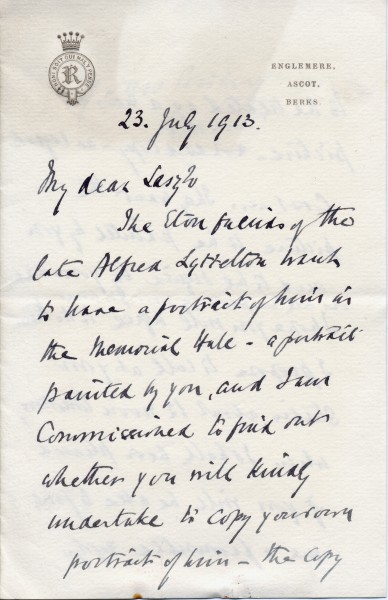 HONI SOIT QUI MAL Y PENSE
R
ENGLEMERE,
ASCOT,
BERKS.
23. July 1913.
My dear Laszlo
The Eton friends of the
late Alfred Lyttelton want
to have a portrait of him in
the Memorial Hall – a portrait
painted by you, and I am
Commissioned to find out
whether you will kindly
undertake to copy your own
portrait of him – the copy